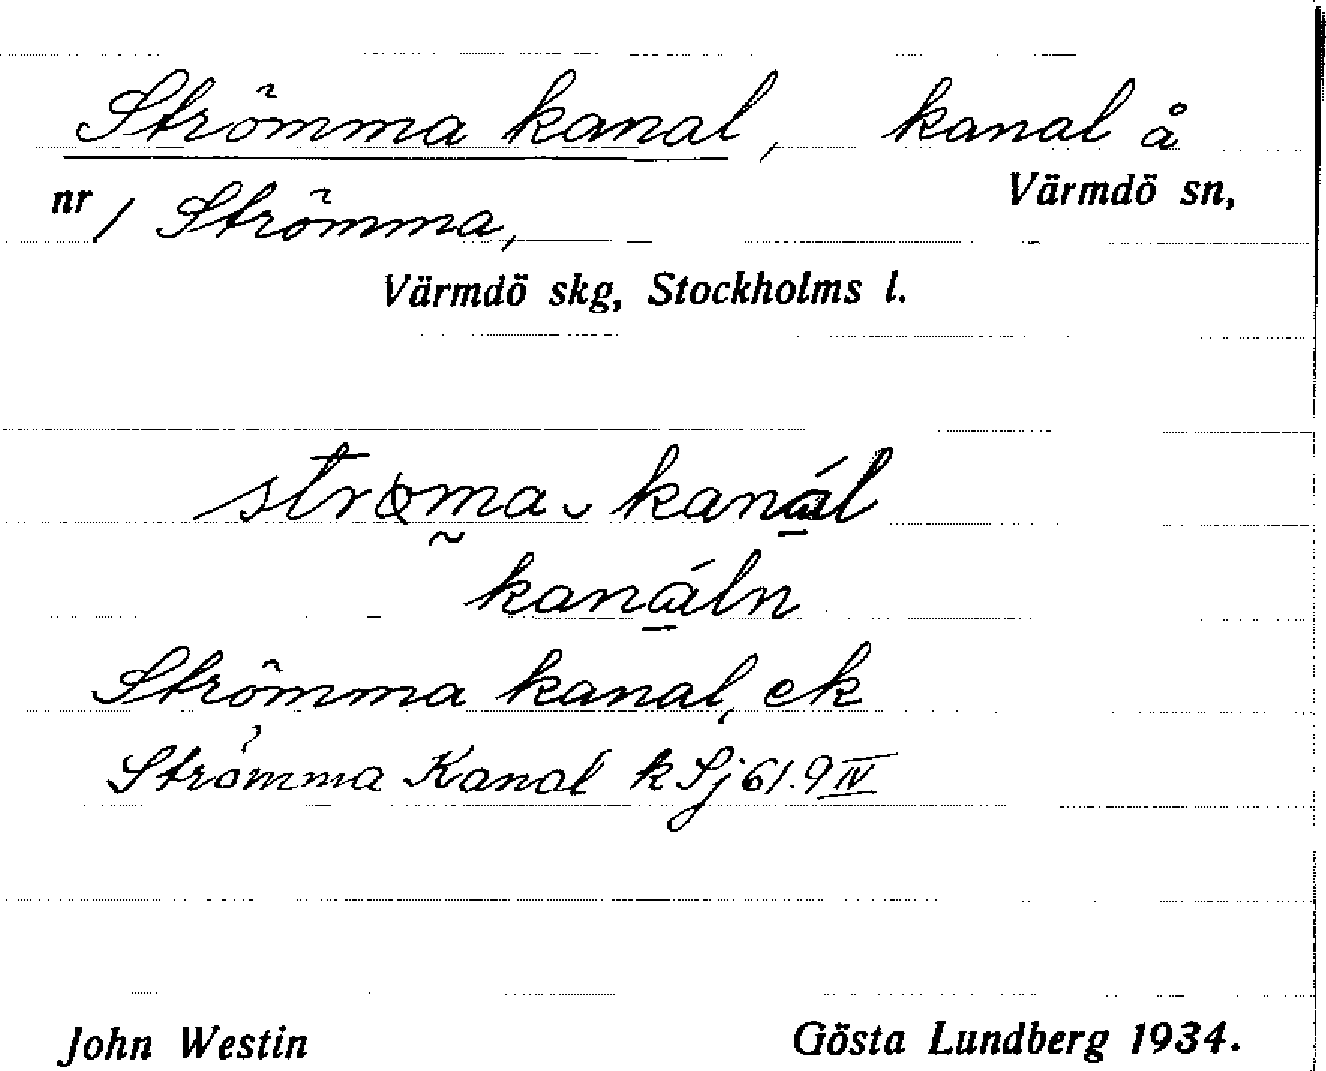 Strömma kanal, kanal å
nr 1 Strömma, Värmdö sn,
Värmdö skg, Stockholms l.
strøma kanál
kanáln
Strömma kanal, ek
Strömma Kanal k Sj 61.9 IV
John Westin Gösta Lundberg 1934.